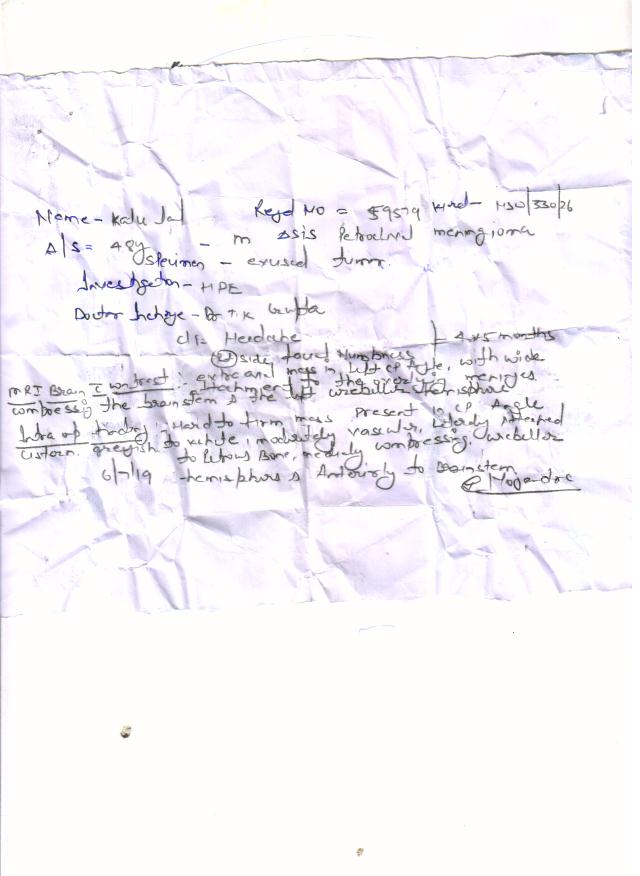 Name - Kalu Lal Regd NO = 59579 Ward - NSW/330/26
A/S = 48y - m Δsis Petroclival meningioma
Specimen - exused tumor.
Investigation - HPE
Doctor Incharge - Dr T.K Gupta
C/F Headache
(L) side facial Numbness } 4 x 5 months
MRI Brain c contrast : extra axial mass in left CP Angle, with wide
attachment to the overlying meninges
compressing the brainstem & the left cerebellar hemisphere
Intra op finding : Hard to firm mass present in CP Angle
cistern. greyish to white, moderately vascular, laterally attached
to Petrous Bone, medially compressing cerebellar
6/7/19 hemisphere & Anteriorly to Brainstem